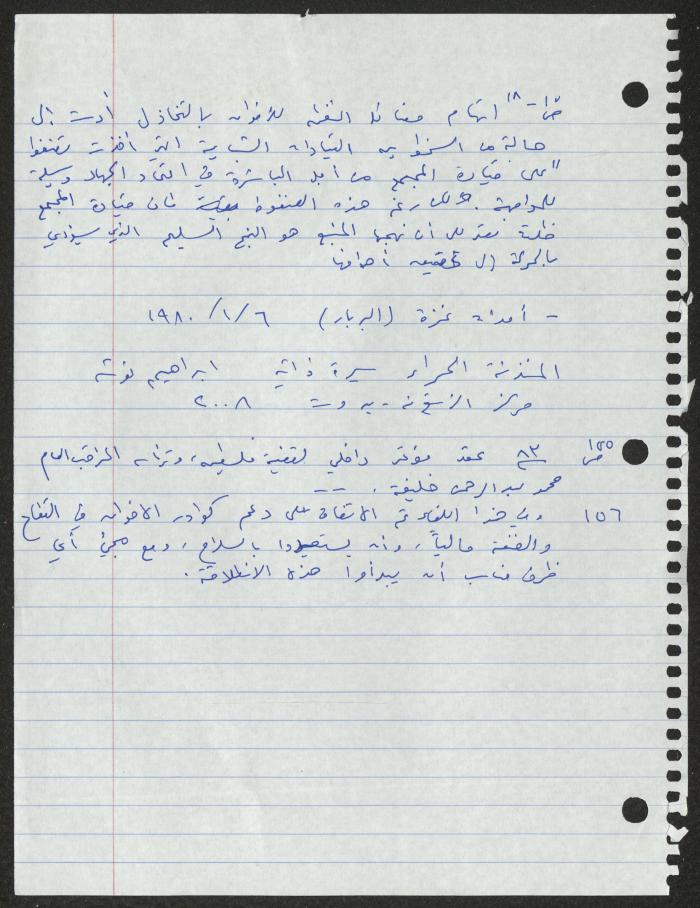 ص ١٨ " اتهام فصائل الضفة للاخوان بالتخاذل أدت الى
حالة من السخط بين القيادات الشابة التي أخذت تضغط
على قيادة المجمع من أجل المباشرة في اتخاذ الجهاد وسيلة
للمواجهة. ولكن رغم هذه الضغوط فان قيادة المجمع
ظلت تعتقد ان نهجها المتبع هو النهج السليم الذي سيؤدي
بالحركة الى تحقيق أهدافها
- أحداث غزة (اليرار) ٦/١/١٩٨٠
المئذنة الحمراء سيرة ذاتية ابراهيم غوشة
مركز الزيتونة - بيروت ٢٠٠٨
ص ١٥٥ ٨٣ عقد مؤتمر داخلي لقضية فلسطين، وترأسه المراقب العام
محمد عبدالرحمن خليفة. --
١٥٦ وفي هذا اللقاء تم الاتفاق على دعم كوادر الاخوان في القطاع
والضفة مالياً، وأن يستعدوا بالسلاح، ومع مجيء أي
ظرف مناسب أن يبدأوا هذه الانطلاقة.